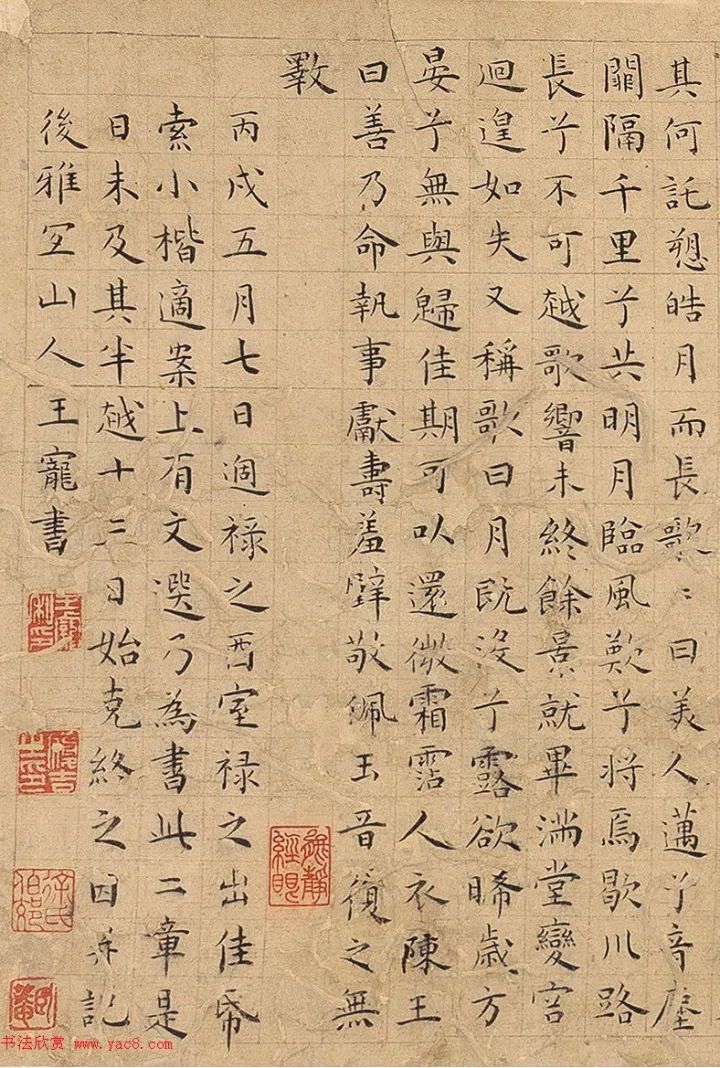 其何託愬皓月而長歌〻曰美人邁兮音塵
闊隔千里兮共明月臨風歎兮將焉歇川路
長兮不可越歌響未終餘景就畢滿堂變容
迴遑如失又稱歌曰月既沒兮露欲晞歲方
晏兮無與歸佳期可以還微霜霑人衣陳王
曰善乃命執事獻壽羞璧敬佩玉音復之無
斁
丙戌五月七日過祿之西室祿之出佳帋
索小楷適案上有文選乃為書此二章是
日未及其半越十三日始克終之因并記
後雅宜山人王寵書
書法欣赏 www.yac8.com